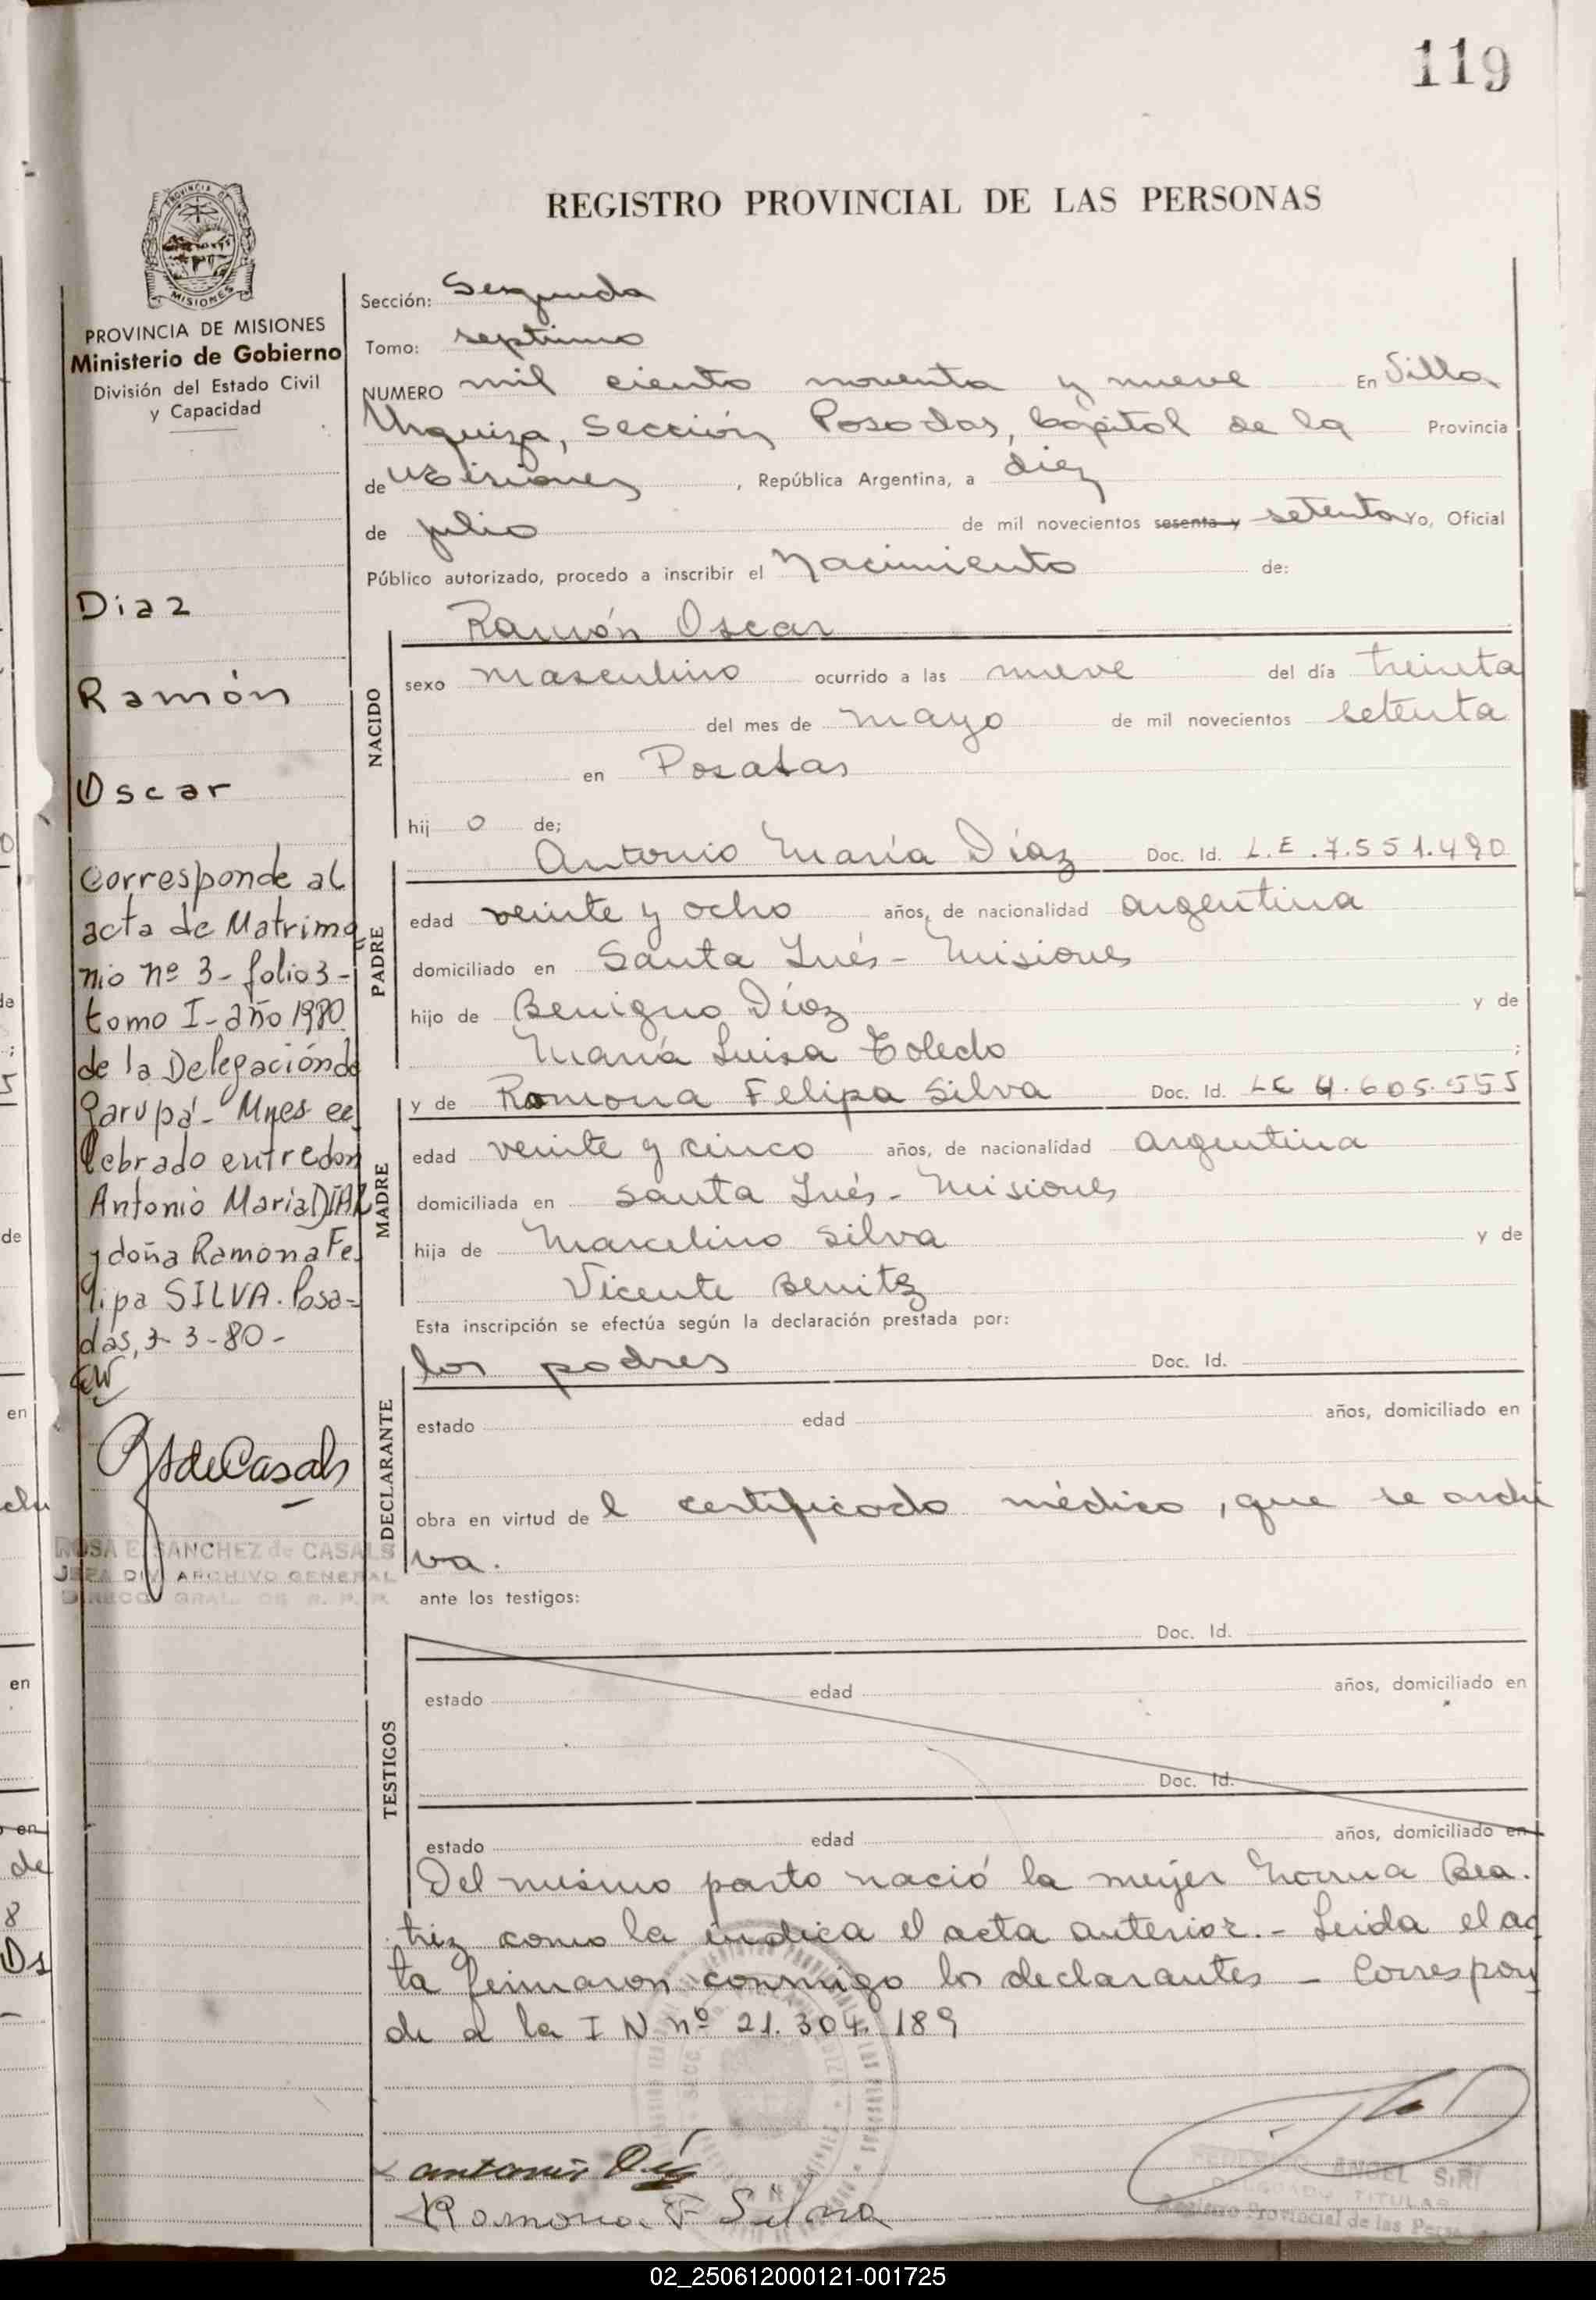 119
PROVINCIA DE
MISIONES
PROVINCIA DE MISIONES
Ministerio de Gobierno
División del Estado Civil
y Capacidad
REGISTRO PROVINCIAL DE LAS PERSONAS
Sección: Segunda
Tomo: septimo
NUMERO mil ciento noventa y nueve En Villa
Urquiza, Sección Posadas, Capital de la Provincia
de Misiones, República Argentina, a diez
de julio de mil novecientos sesenta y setenta Yo, Oficial
Público autorizado, procedo a inscribir el Nacimiento de:
Ramón Oscar
NACIDO
sexo masculino ocurrido a las nueve del día treinta
del mes de mayo de mil novecientos setenta
en Posadas
hij o de;
Antonio María Díaz Doc. Id. L.E. 7.551.490
PADRE
edad veinte y ocho años, de nacionalidad argentina
domiciliado en Santa Inés - Misiones
hijo de Benigno Díaz y de
María Luisa Toledo ;
y de Ramona Felipa Silva Doc. Id. LE 4.605.555
MADRE
edad veinte y cinco años, de nacionalidad argentina
domiciliada en Santa Inés - Misiones
hija de Marcelino Silva y de
Vicente Benitz
Esta inscripción se efectúa según la declaración prestada por:
los padres Doc. Id.
DECLARANTE
estado edad años, domiciliado en
obra en virtud de l certificado médico, que se archi
va.
ante los testigos:
Doc. Id.
TESTIGOS
estado edad años, domiciliado en
Doc. Id.
estado edad años, domiciliado en
Del mismo parto nació la mujer Norma Bea.
triz como la indica el acta anterior. - Leida el ac
ta firmaron conmigo los declarantes - Correspon
de a la I N nº 21.304.189
antonio Diaz
Ramona F Silva
ANGEL SIRI
DELEGADO TITULAR
Registro Provincial de las Perso
Diaz
Ramón
Oscar
Corresponde al
acta de Matrimo
nio nº 3 - folio 3 -
tomo I - año 1980
de la Delegación de
Garupá - Mnes ce
lebrado entre don
Antonio María DIAZ
y doña Ramona Fe
lipa SILVA. Posa-
das, 3-3-80 -
RSdeCasals
ROSA E. SANCHEZ de CASALS
JEFA DIV. ARCHIVO GENERAL
DIRECC. GRAL. DE R. P. P.
02_250612000121-001725